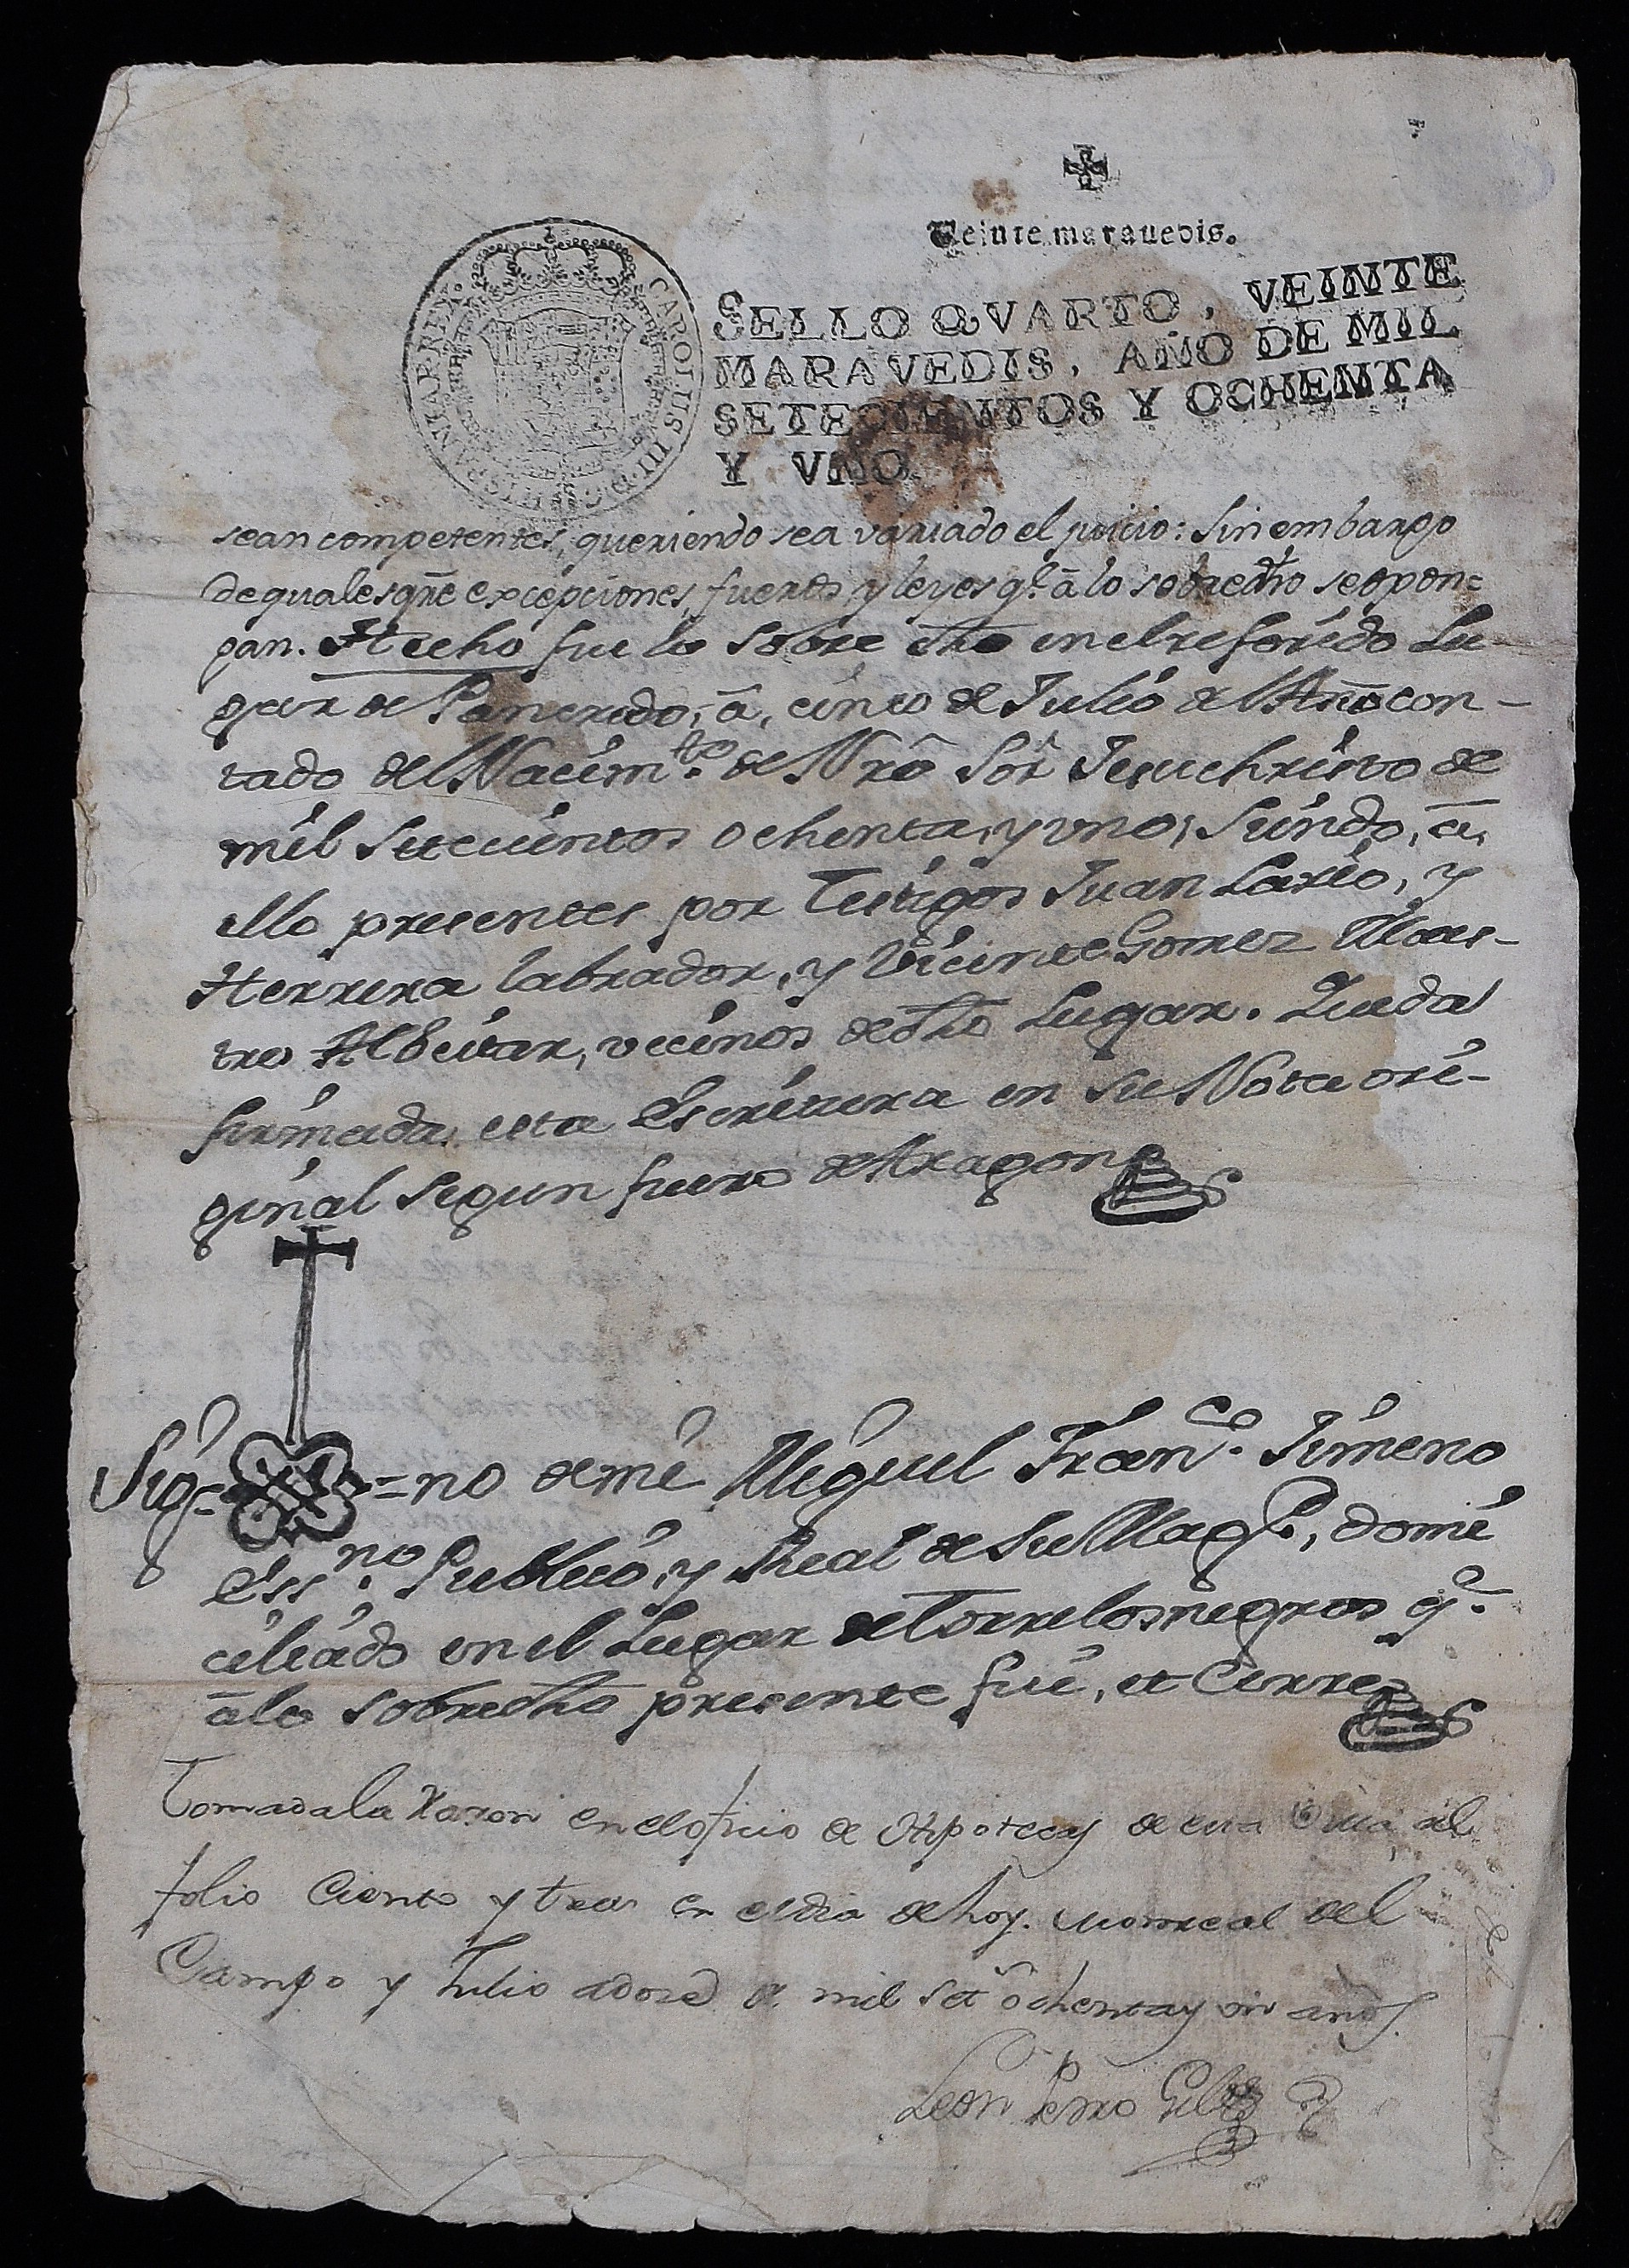 Veinte maravedis.
CAROLUS III D G HISPANIAR REX
SELLO QVARTO, VEINTE
MARAVEDIS, AÑO DE MIL
SETECIENTOS Y OCHENTA
Y VNO.
sean competentes, queriendo sea variado el juicio: Sin embargo
de qualesqre excepciones, fueros, y leyes qe. â lo sobredho se opon=
gan. Hecho fue lo sobre dho en el referido Lu-
gar de Pancrudo, â, cinco de Julio del Año con-
tado del Nacimto. de Nro Sor Jesuchristo de
mil setecientos ochenta, y uno, siendo, â,
ello presentes por Testigos Juan Lario, y
Herrera labrador, y Vicente Gomez Maes-
tro Albeitar, vecinos de dho Lugar. Queda
firmada esta Escritura en su Nota ori-
ginal segun fuero de Aragon
Sig= =no de mi Miguel Franco. Jimeno
Essno. Publico, y Real de Su Magd., domi
ciliado en el Lugar de Torrelosnegros qe.
â lo sobredho presente fui, et Cerre
Tomada la Razon en el oficio de Hipotecas de esta Villa, al
folio Ciento y tres en el dia de hoy. Monreal del
Campo y Julio a doze de mil set ochenta y un años.
Leon